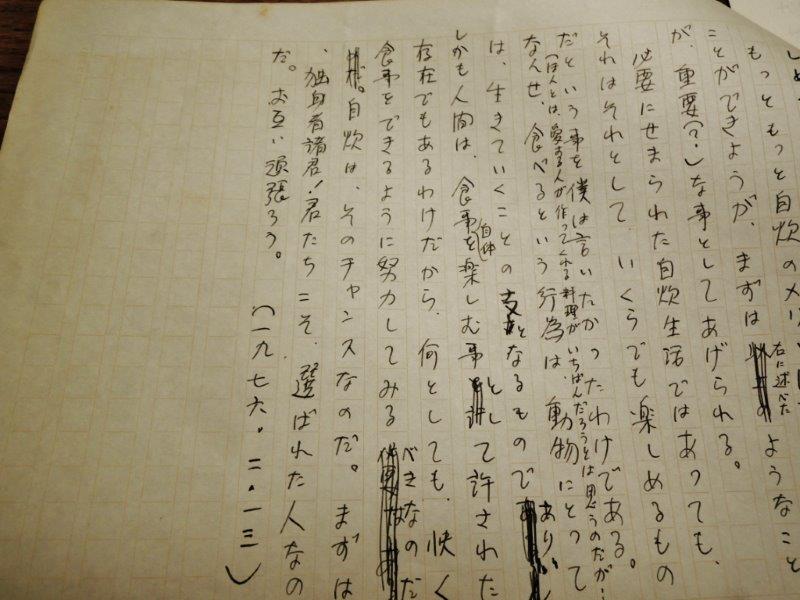 もっともっと自炊のメリ
ことができようが、まずは右に述べたようなこと
が、重要(?)な事としてあげられる。
必要にせまられた自炊生活ではあっても、
それはそれとして、いくらでも楽しめるもの
だという事を僕は言いたかったわけである。
(ほんとは、愛する人が作ってくれる料理がいちばんだろうとは思うのだが…
なんせ、食べるという行為は、動物にとって
は、生きていくことの支えとなるものであり、
しかも人間は、食事自体を楽しむ事として許された
存在でもあるわけだから、何としても、快く
食事をできるように努力してみるべきなのだ
自炊は、そのチャンスなのだ。まずは
、独身者諸君!君たちこそ、選ばれた人なの
だ。お互い頑張ろう。
(一九七六・二・一三)